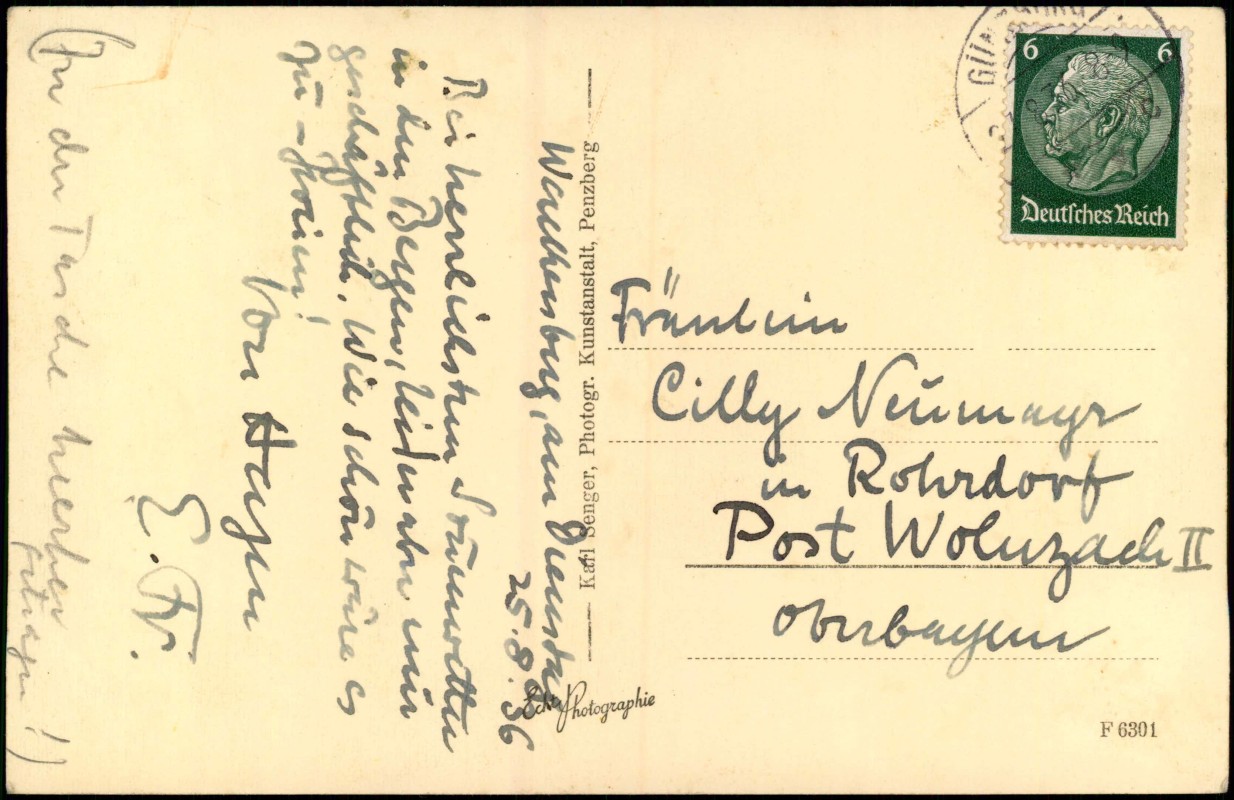 Wachensburg, am Dienstag
25.8.36
Bei herrlichstem Sonnwetter
in den Bergen, leider aber nur
geschäftlich. Wie schön wäre es
zu - Hörien!
Von Hayen
E. Fr.
(In der Tasche hierher
getragen!)
Karl Senger, Photogr. Kunstanstalt, Penzberg
Echt Photographie
6 6
Deutsches Reich
Fräulein
Cilly Neumayr
in Rohrdorf
Post Wolnzach II
Oberbayern
F 6301